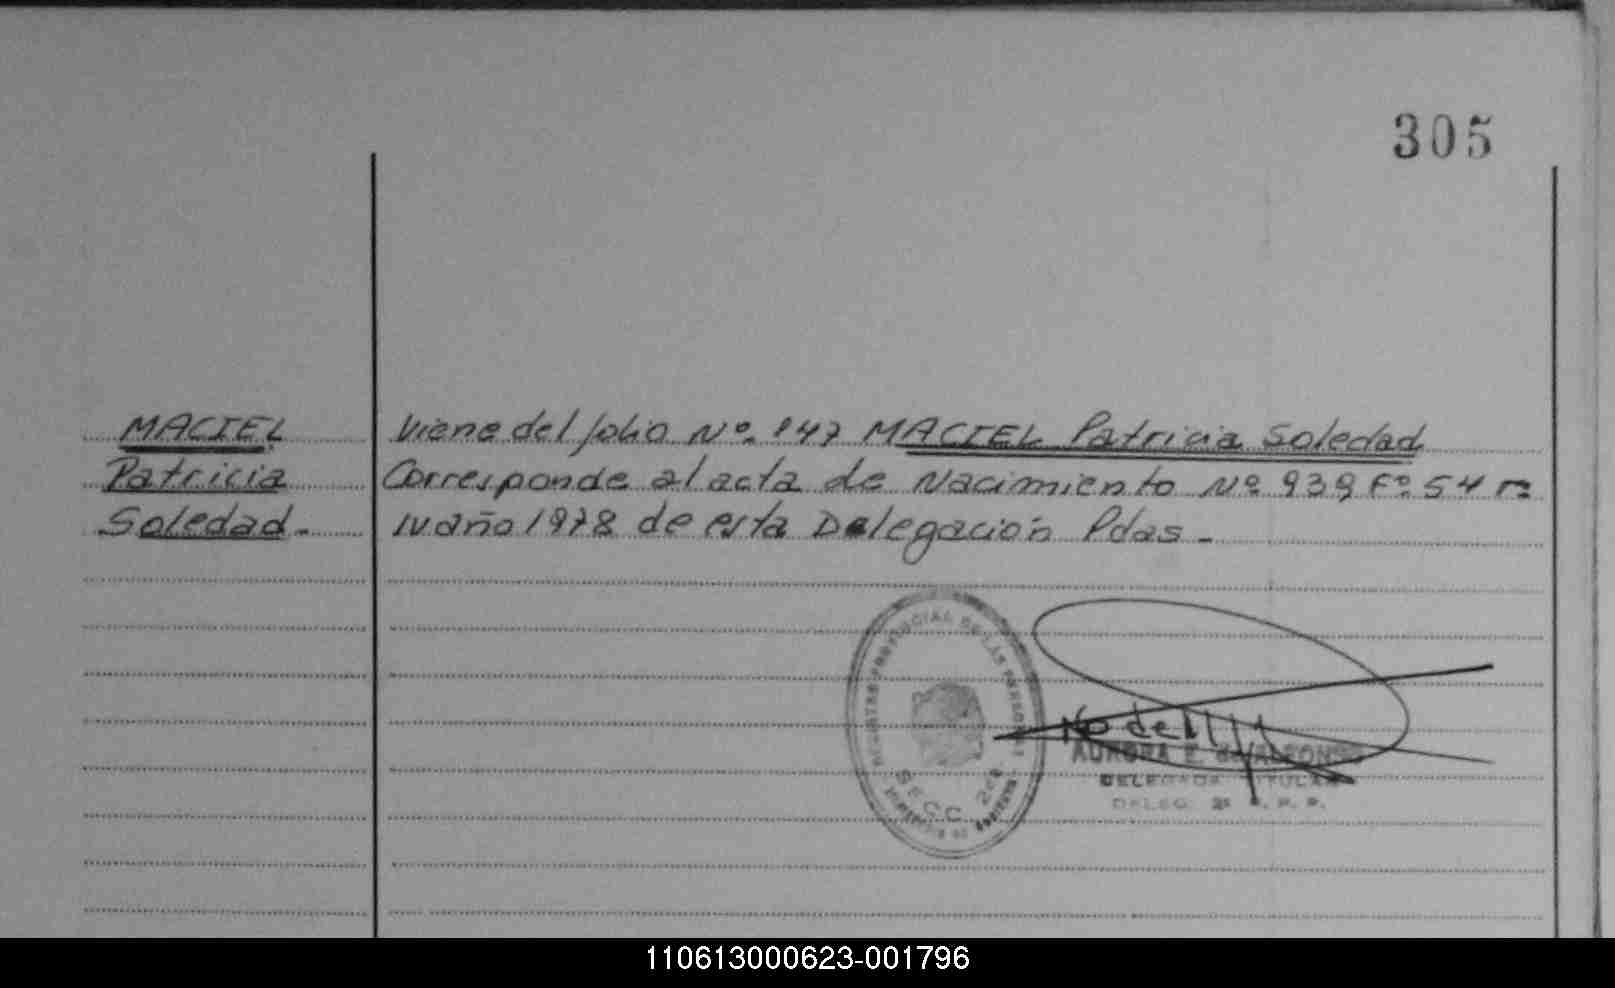 305
MACIEL
Patricia
Soledad.-
Viene del folio Nº 147 MACIEL Patricia Soledad
Corresponde al acta de Nacimiento Nº 939 Fº 54 Tº
IV año 1978 de esta Delegación Pdas.-
PROVINCIAL DE LAS PERSONAS
SECC 2da
AURORA E. de ALFONSO
DELEGADA TITULAR
DELEG. 2ª R. P. P.
110613000623-001796